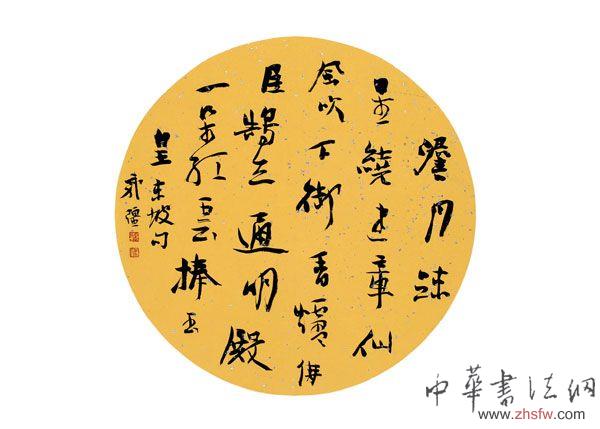 澹月疎
星繞建章仙
風吹下御香爐侍
臣鵠立通明殿
一朵紅雲捧玉
皇 東坡句
中華書法網
www.zhsfw.com